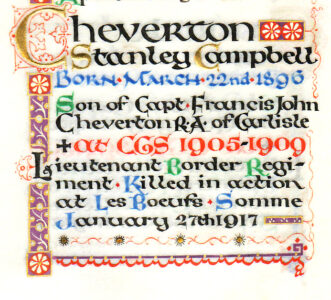 Cheverton
Stanley Campbell
Born · March · 22nd · 1896
Son of Capt · Francis John
Cheverton R.A. of Carlisle
+ at CGS 1905-1909
Lieutenant Border Regi-
ment · Killed in action
at Les Boeufs · Somme
January 27th 1917